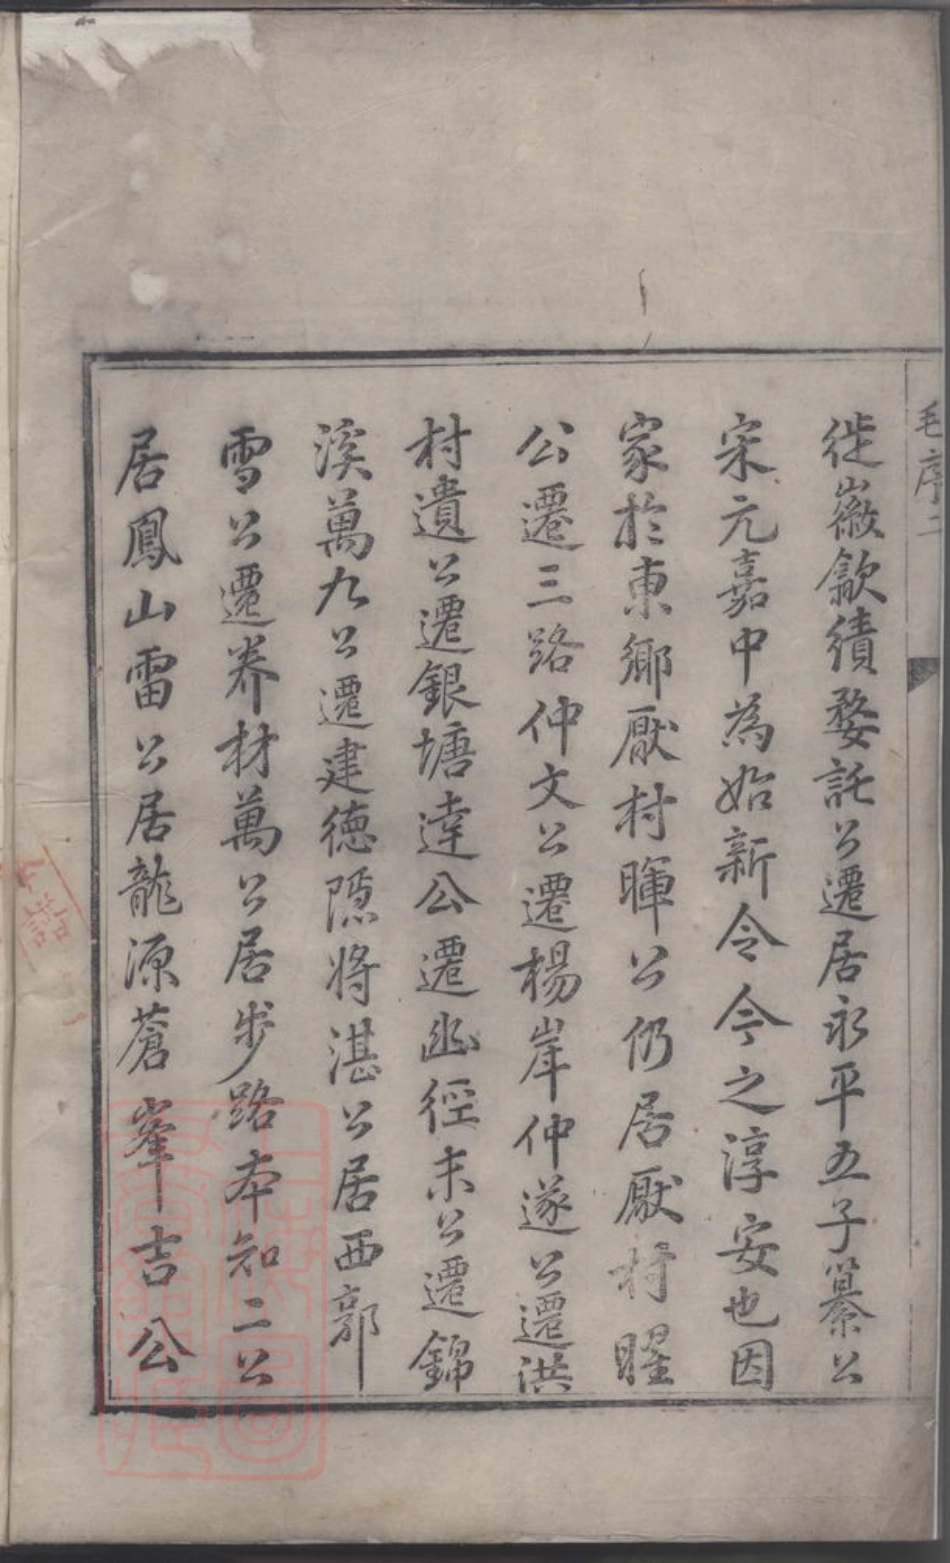 毛序二
徙徽歙績婺託公遷居永平五子纂公
宋元嘉中為始新令令之淳安也因
家於東鄉厭村暉公仍居厭村曜
公遷三路仲文公遷楊岸仲遂公遷洪
村遺公遷銀塘達公遷幽徑未公遷錦
溪萬九公遷建德隱將湛公居西郭
雪公遷养材萬公居步路本知二公
居鳳山雷公居龍源蒼峯吉公